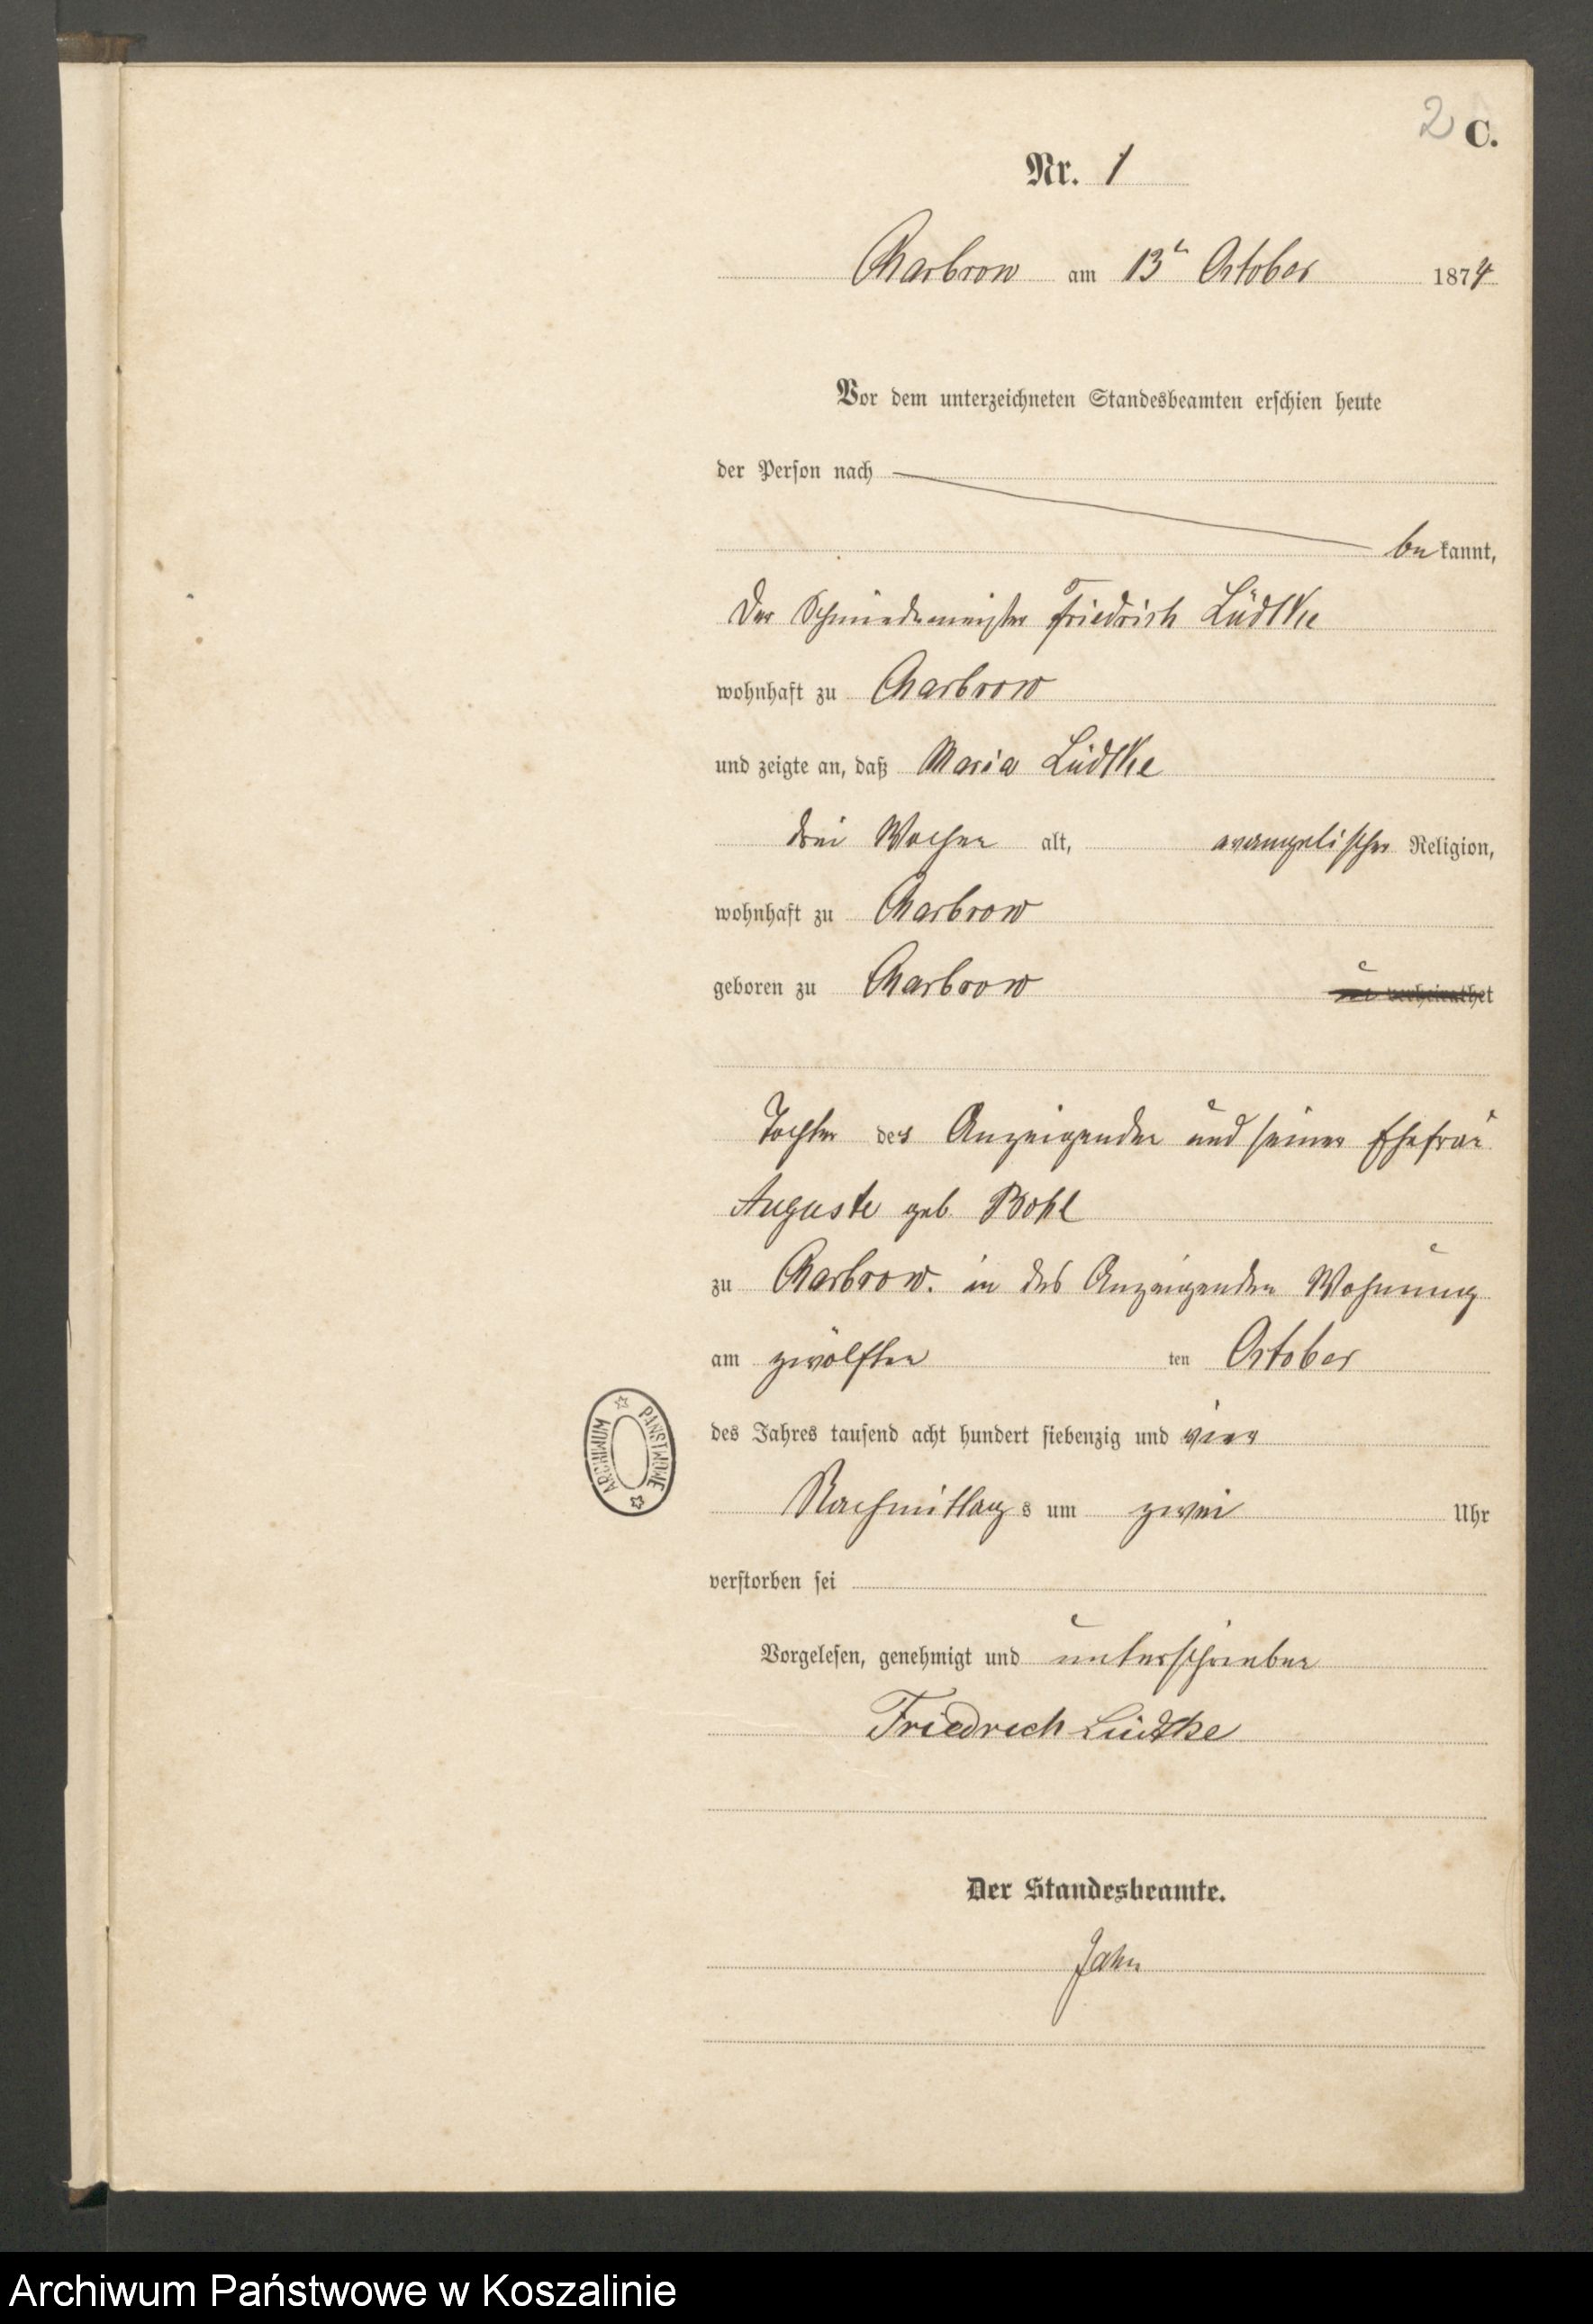 2 C.
Nr. 1
Charbrow am 13t October 1874
Vor dem unterzeichneten Standesbeamten erschien heute
der Person nach
bekannt,
Der Schmiedemeister Friedrich Lüdtke
wohnhaft zu Charbrow
und zeigte an, daß Maria Lüdtke
drei Wochen alt, evangelischer Religion,
wohnhaft zu Charbrow
geboren zu Charbrow un verheirathet
Tochter des Anzeigenden und seiner Ehefrau
Auguste geb. Bohl
zu Charbrow. in des Anzeigenden Wohnung
am zwölften ten October
des Jahres tausend acht hundert siebenzig und vier
Nachmittags um zwei Uhr
verstorben sei
Vorgelesen, genehmigt und unterschrieben
Friedrich Lüdtke
Der Standesbeamte.
Jahn
ARCHIWUM PAŃSTWOWE
Archiwum Państwowe w Koszalinie